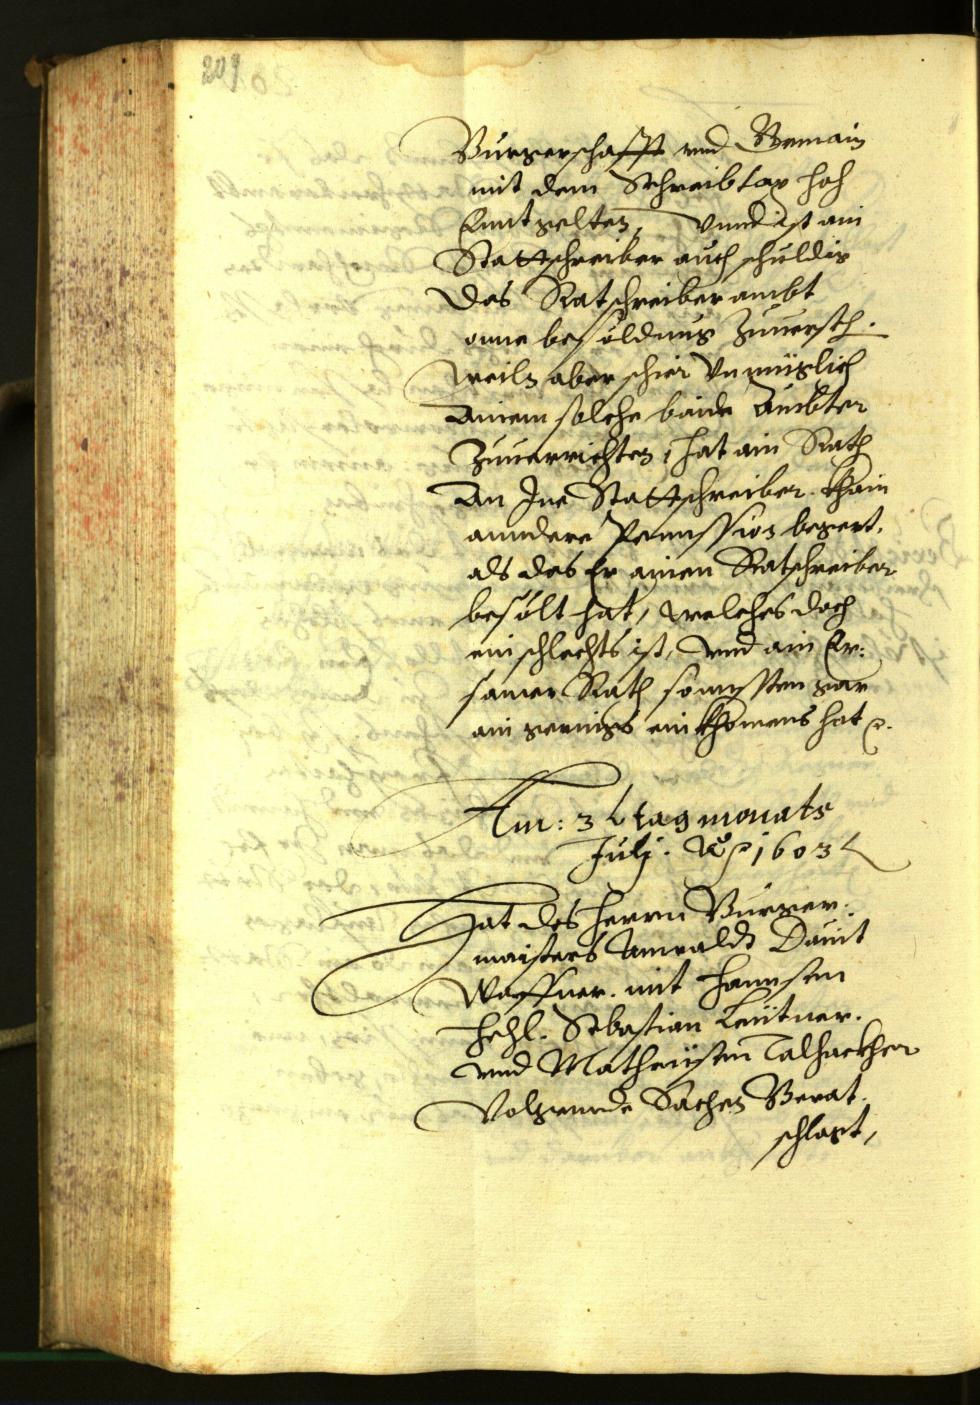 209
Burgerschafft vnd Gemain
mit dem Schreibtax hoch
Enntgelten, vnnd ist ain
Stattschreiber auch schuldig
das Ratschreiber ambt
onne besöldung zuuerseh.
weiln aber schier vnmüglich
ainem solche baide Ämbter
zuuerrichten, hat ain Rath
an Ine Stattschreiber khain
anndere begert,
als das Er ainen Ratschreiber
besölt hat, welches doch
ein schlechts ist, vnd ain Er:
samer Rath sonnsten gar
ain gerings einkhomens hat
Am: 3 tag monats
Julj. Ao 1603
Hat des herrn Burger:
maisters Anwaldt Dauit
Waffner. mit hannsen
hehl. Sebastian Leütner.
vnd Matheüsen Talhackher
Volgennde Sachen Berat:
schlagt,